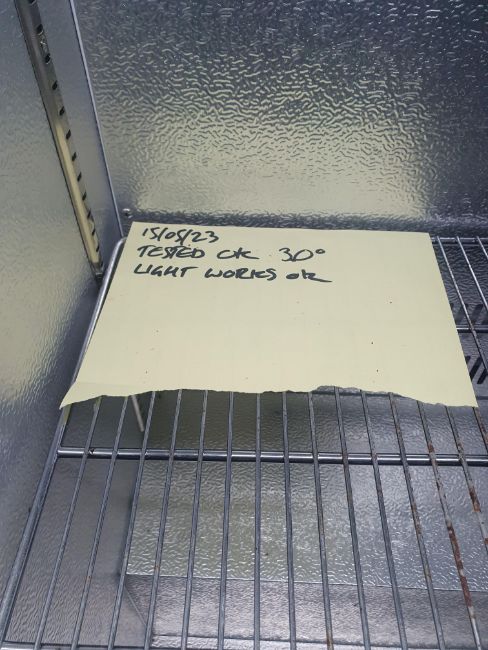 15/05/23
TESTED OK 30°
LIGHT WORKS OK